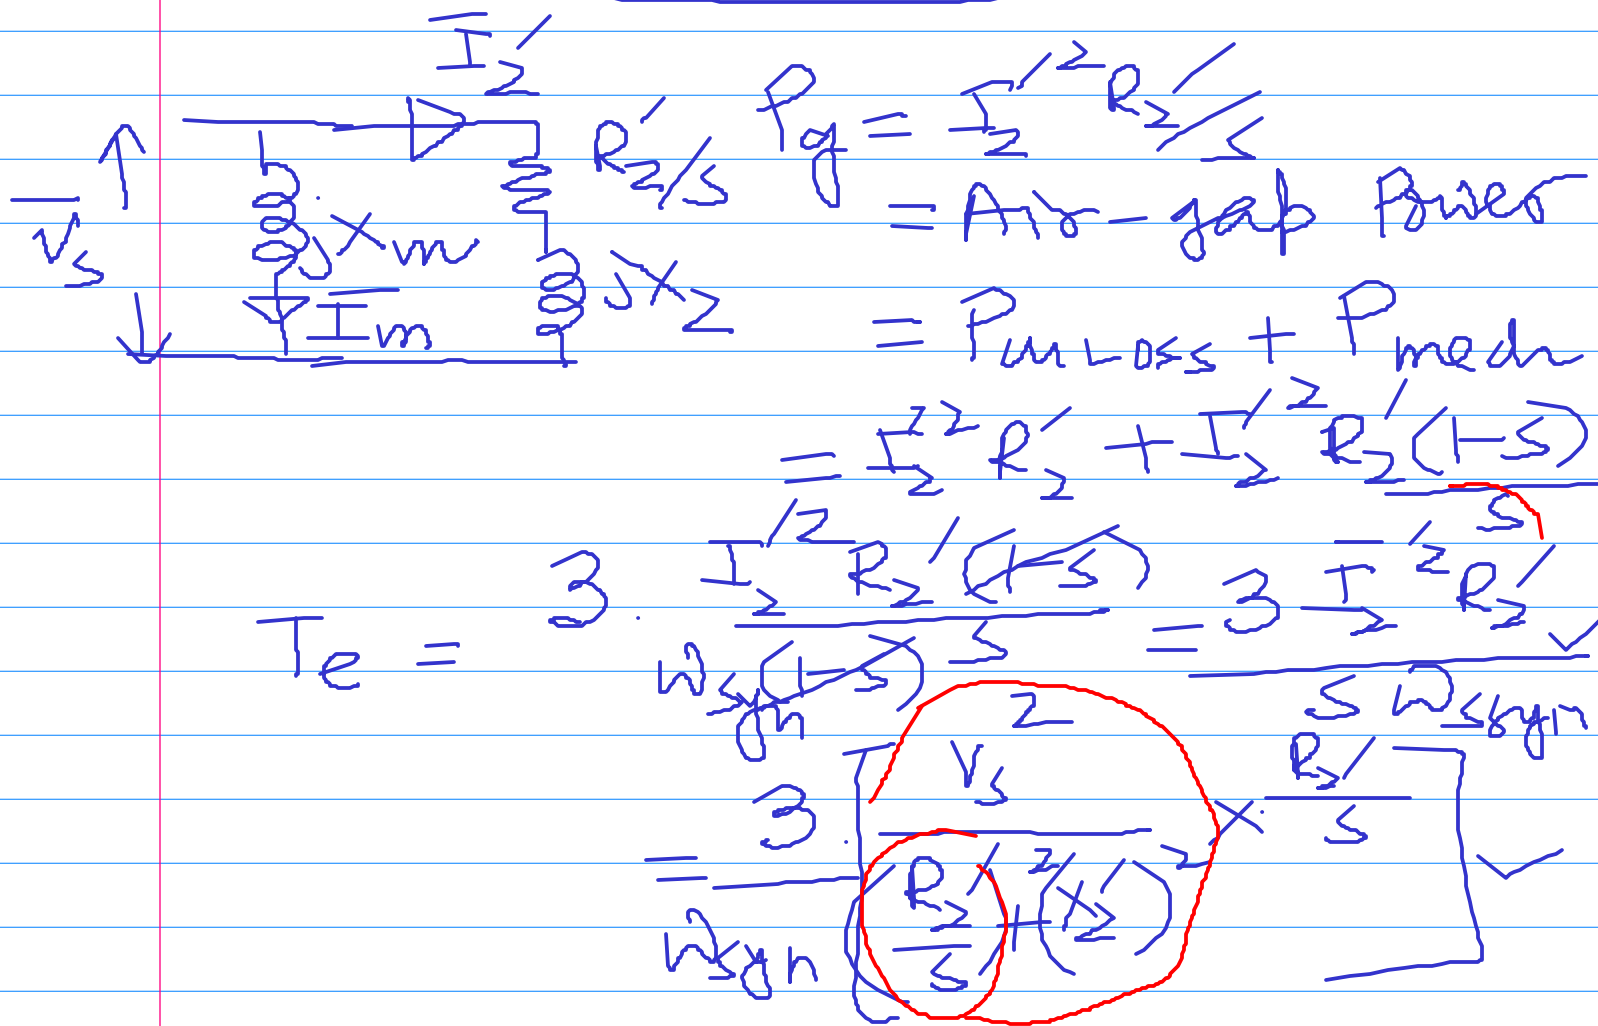 I₂'
R₂'/s
V̄s
jXm
Īm
jX₂
Pg = I₂'² R₂'/s
= Air-gap Power
= PcuLoss + Pmech
= I₂'² R₂' + I₂'² R₂' (1-s)/s
Te = 3 · I₂'² R₂' (1-s) / ωsyn (1-s) s = 3 I₂'² R₂' / s ωsyn ✓
= 3/ωsyn · [ Vs² / ((R₂'/s)² + (X₂')²) × R₂'/s ] ✓